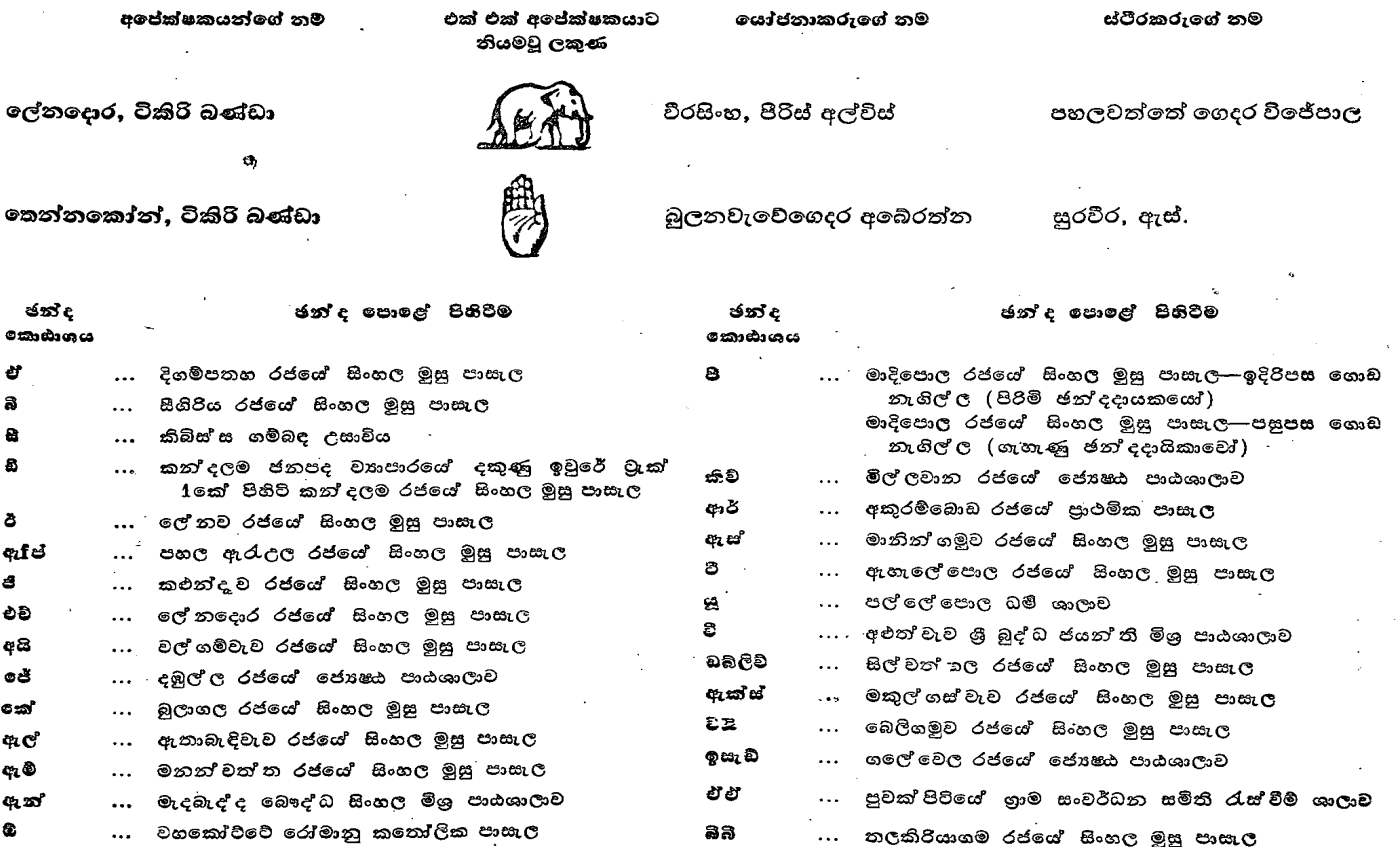 අපේක්ෂකයන්ගේ නම්
එක් එක් අපේක්ෂකයාට නියමවූ ලකුණ
යෝජනාකරුගේ නම
ස්ථිරකරුගේ නම
ලේනදොර, ටිකිරි බණ්ඩා
වීරසිංහ, පීරිස් අල්විස්
පහලවත්තේ ගෙදර විජේපාල
තෙන්නකෝන්, ටිකිරි බණ්ඩා
බුලනවැවේගෙදර අබේරත්න
සුරවීර, ඇස්.
ඡන්ද කොඨාශය
ඡන්ද පොළේ පිහිටීම
ඒ ... දිගම්පතහ රජයේ සිංහල මුසු පාසැල
බී ... සීගිරිය රජයේ සිංහල මුසු පාසැල
සී ... කිබිස්ස ගම්බඳ උසාවිය
ඩී ... කන්දලම ජනපද ව්‍යාපාරයේ දකුණු ඉවුරේ ට්‍රැක්
1කේ පිහිටි කන්දලම රජයේ සිංහල මුසු පාසැල
ඊ ... ලේනව රජයේ සිංහල මුසු පාසැල
ඇෆ් ... පහල ඇරැව්ල රජයේ සිංහල මුසු පාසැල
ජී ... කළුන්දෑව රජයේ සිංහල මුසු පාසැල
එච් ... ලේනදොර රජයේ සිංහල මුසු පාසැල
අයි ... වල්ගම්වැව රජයේ සිංහල මුසු පාසැල
ජේ ... දඹුල්ල රජයේ ජ්‍යෙෂ්ඨ පාඨශාලාව
කේ ... බුලාගල රජයේ සිංහල මුසු පාසැල
ඇල් ... ඇතාබැඳිවැව රජයේ සිංහල මුසු පාසැල
ඇම් ... මනන්වත්ත රජයේ සිංහල මුසු පාසැල
ඇන් ... මැදබැද්ද බෞද්ධ සිංහල මිශ්‍ර පාඨශාලාව
ඕ ... වහකෝට්ටේ රෝමානු කතෝලික පාසැල
ඡන්ද කොඨාශය
ඡන්ද පොළේ පිහිටීම
පී ... මාදිපොල රජයේ සිංහල මුසු පාසැල—ඉදිරිපස ගොඩ
නැගිල්ල (පිරිමි ඡන්දදායකයෝ)
මාදිපොල රජයේ සිංහල මුසු පාසැල—පසුපස ගොඩ
නැගිල්ල (ගැහැණු ඡන්දදායිකාවෝ)
කිව් ... මිල්ලවාන රජයේ ජ්‍යෙෂ්ඨ පාඨශාලාව
ආර් ... අකුරම්බොඩ රජයේ ප්‍රාථමික පාසැල
ඇස් ... මානින්ගමුව රජයේ සිංහල මුසු පාසැල
ටී ... ඇහැලේපොල රජයේ සිංහල මුසු පාසැල
යූ ... පල්ලේපොල ධර්ම ශාලාව
වී ... අළුත්වැව ශ්‍රී බුද්ධ ජයන්ති මිශ්‍ර පාඨශාලාව
ඩබ්ලිව් ... සිල්වත්ගල රජයේ සිංහල මුසු පාසැල
ඇක්ස් ... මකුල්ගස්වැව රජයේ සිංහල මුසු පාසැල
... බෙලිගමුව රජයේ සිංහල මුසු පාසැල
ඉසැඩ් ... ගලේවෙල රජයේ ජ්‍යෙෂ්ඨ පාඨශාලාව
ඒඒ ... පුවක්පිටියේ ග්‍රාම සංවර්ධන සමිති රැස්වීම් ශාලාව
බීබී ... තලකිරියාගම රජයේ සිංහල මුසු පාසැල